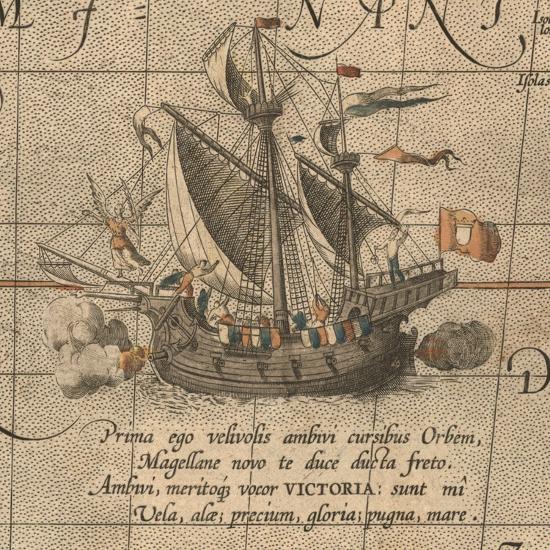 M
N
I
Isolas
D
Prima ego velivolis ambivi cursibus Orbem,
Magellane novo te duce ducta freto.
Ambivi, meritoq₃ vocor VICTORIA: sunt mî
Vela, alæ; precium, gloria; pugna, mare.